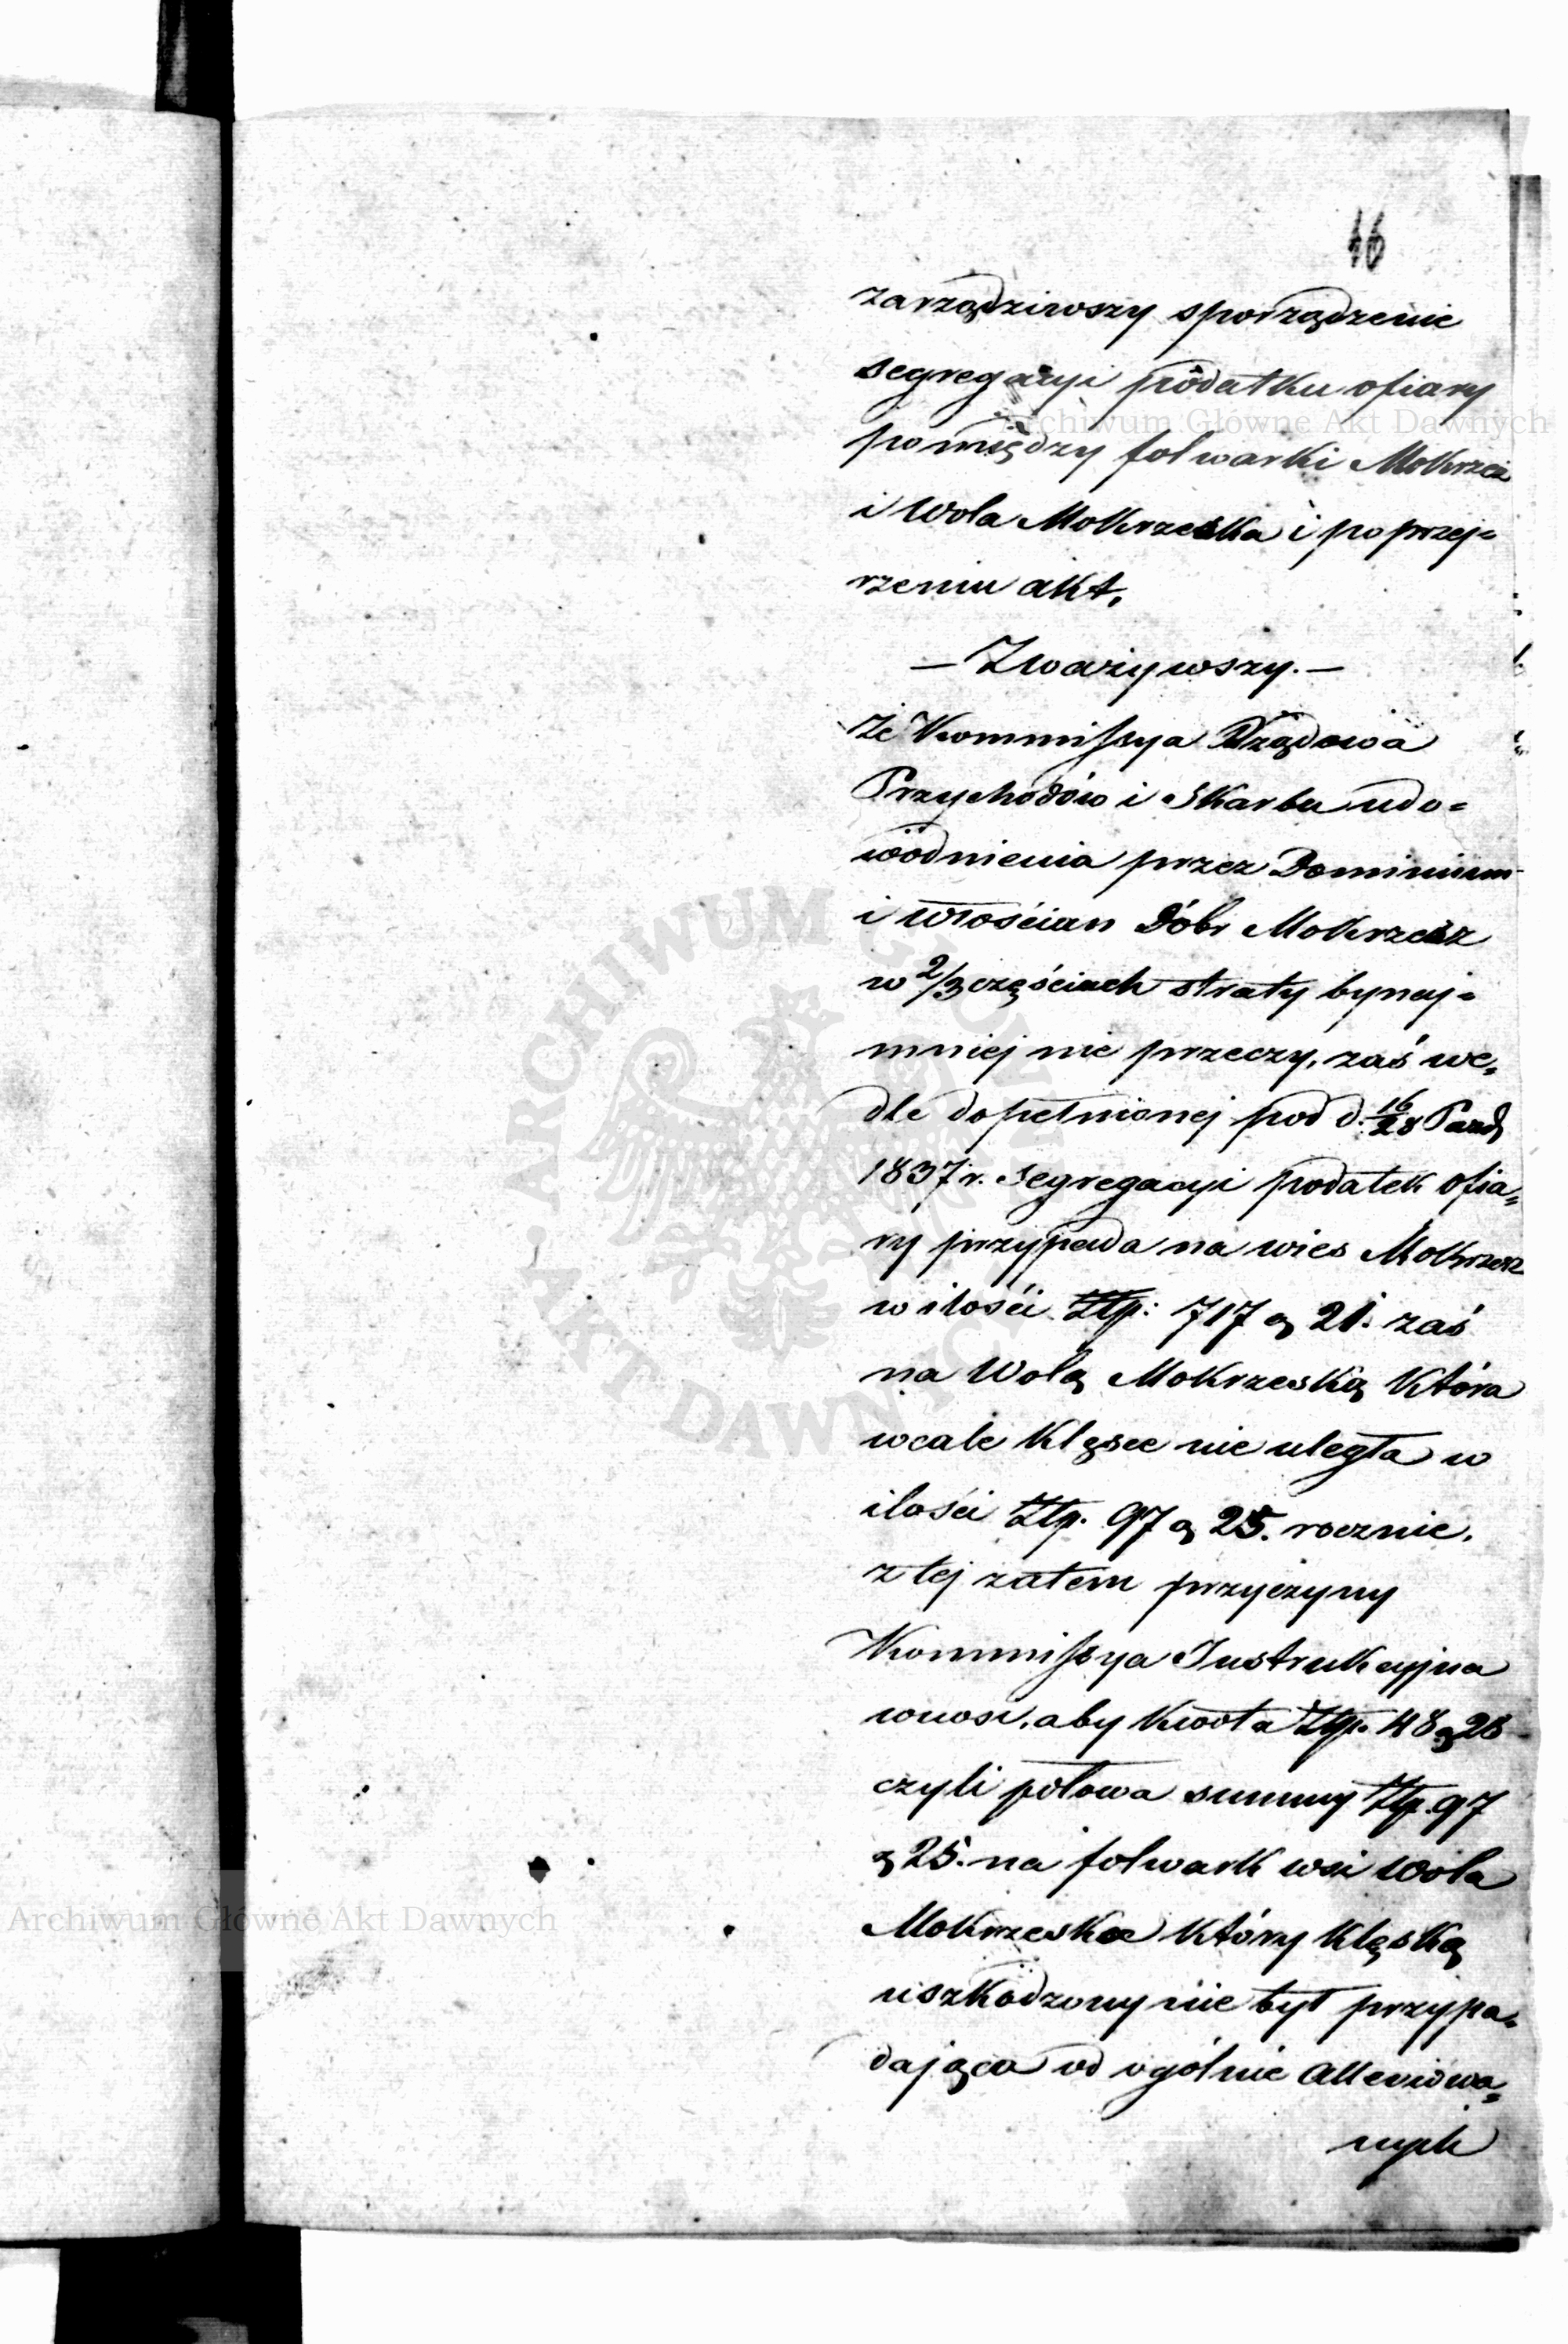 16
zarządziwszy sporządzenie
segregacyi podatku ofiary
pomiędzy folwarki Mokrzesz
i Wola Mokrzeska i po przej=
rzeniu akt.
— Zważywszy. —
że Kommissya Rządowa
Przychodów i Skarbu udo=
wodnienia przez Dominium
i włościan Dóbr Mokrzesz
w 2/3 częściach straty bynaj=
mniej nie przeczy, zaś we=
dle dopełnionej pod d. 16/28 Paźd
1837 r. segregacyi podatek ofia=
ry przypada na wieś Mokrzesz
w ilości Złp: 717 g 21. zaś
na Wolą Mokrzeską która
wcale klęsce nie uległa w
ilości Złp. 97 g 25. rocznie.
z tej zatem przyczyny
Kommissya Instrukcyjna
wnosi, aby kwota Złp. 48 g 28
czyli połowa summy Złp. 97
g 25. na folwark wsi Wola
Mokrzeska który klęską
uszkodzony nie był przypa=
dająca od ogólnie allewiowa=
nych
Archiwum Główne Akt Dawnych
Archiwum Główne Akt Dawnych
ARCHIWUM GŁÓWNE • AKT DAWNYCH •